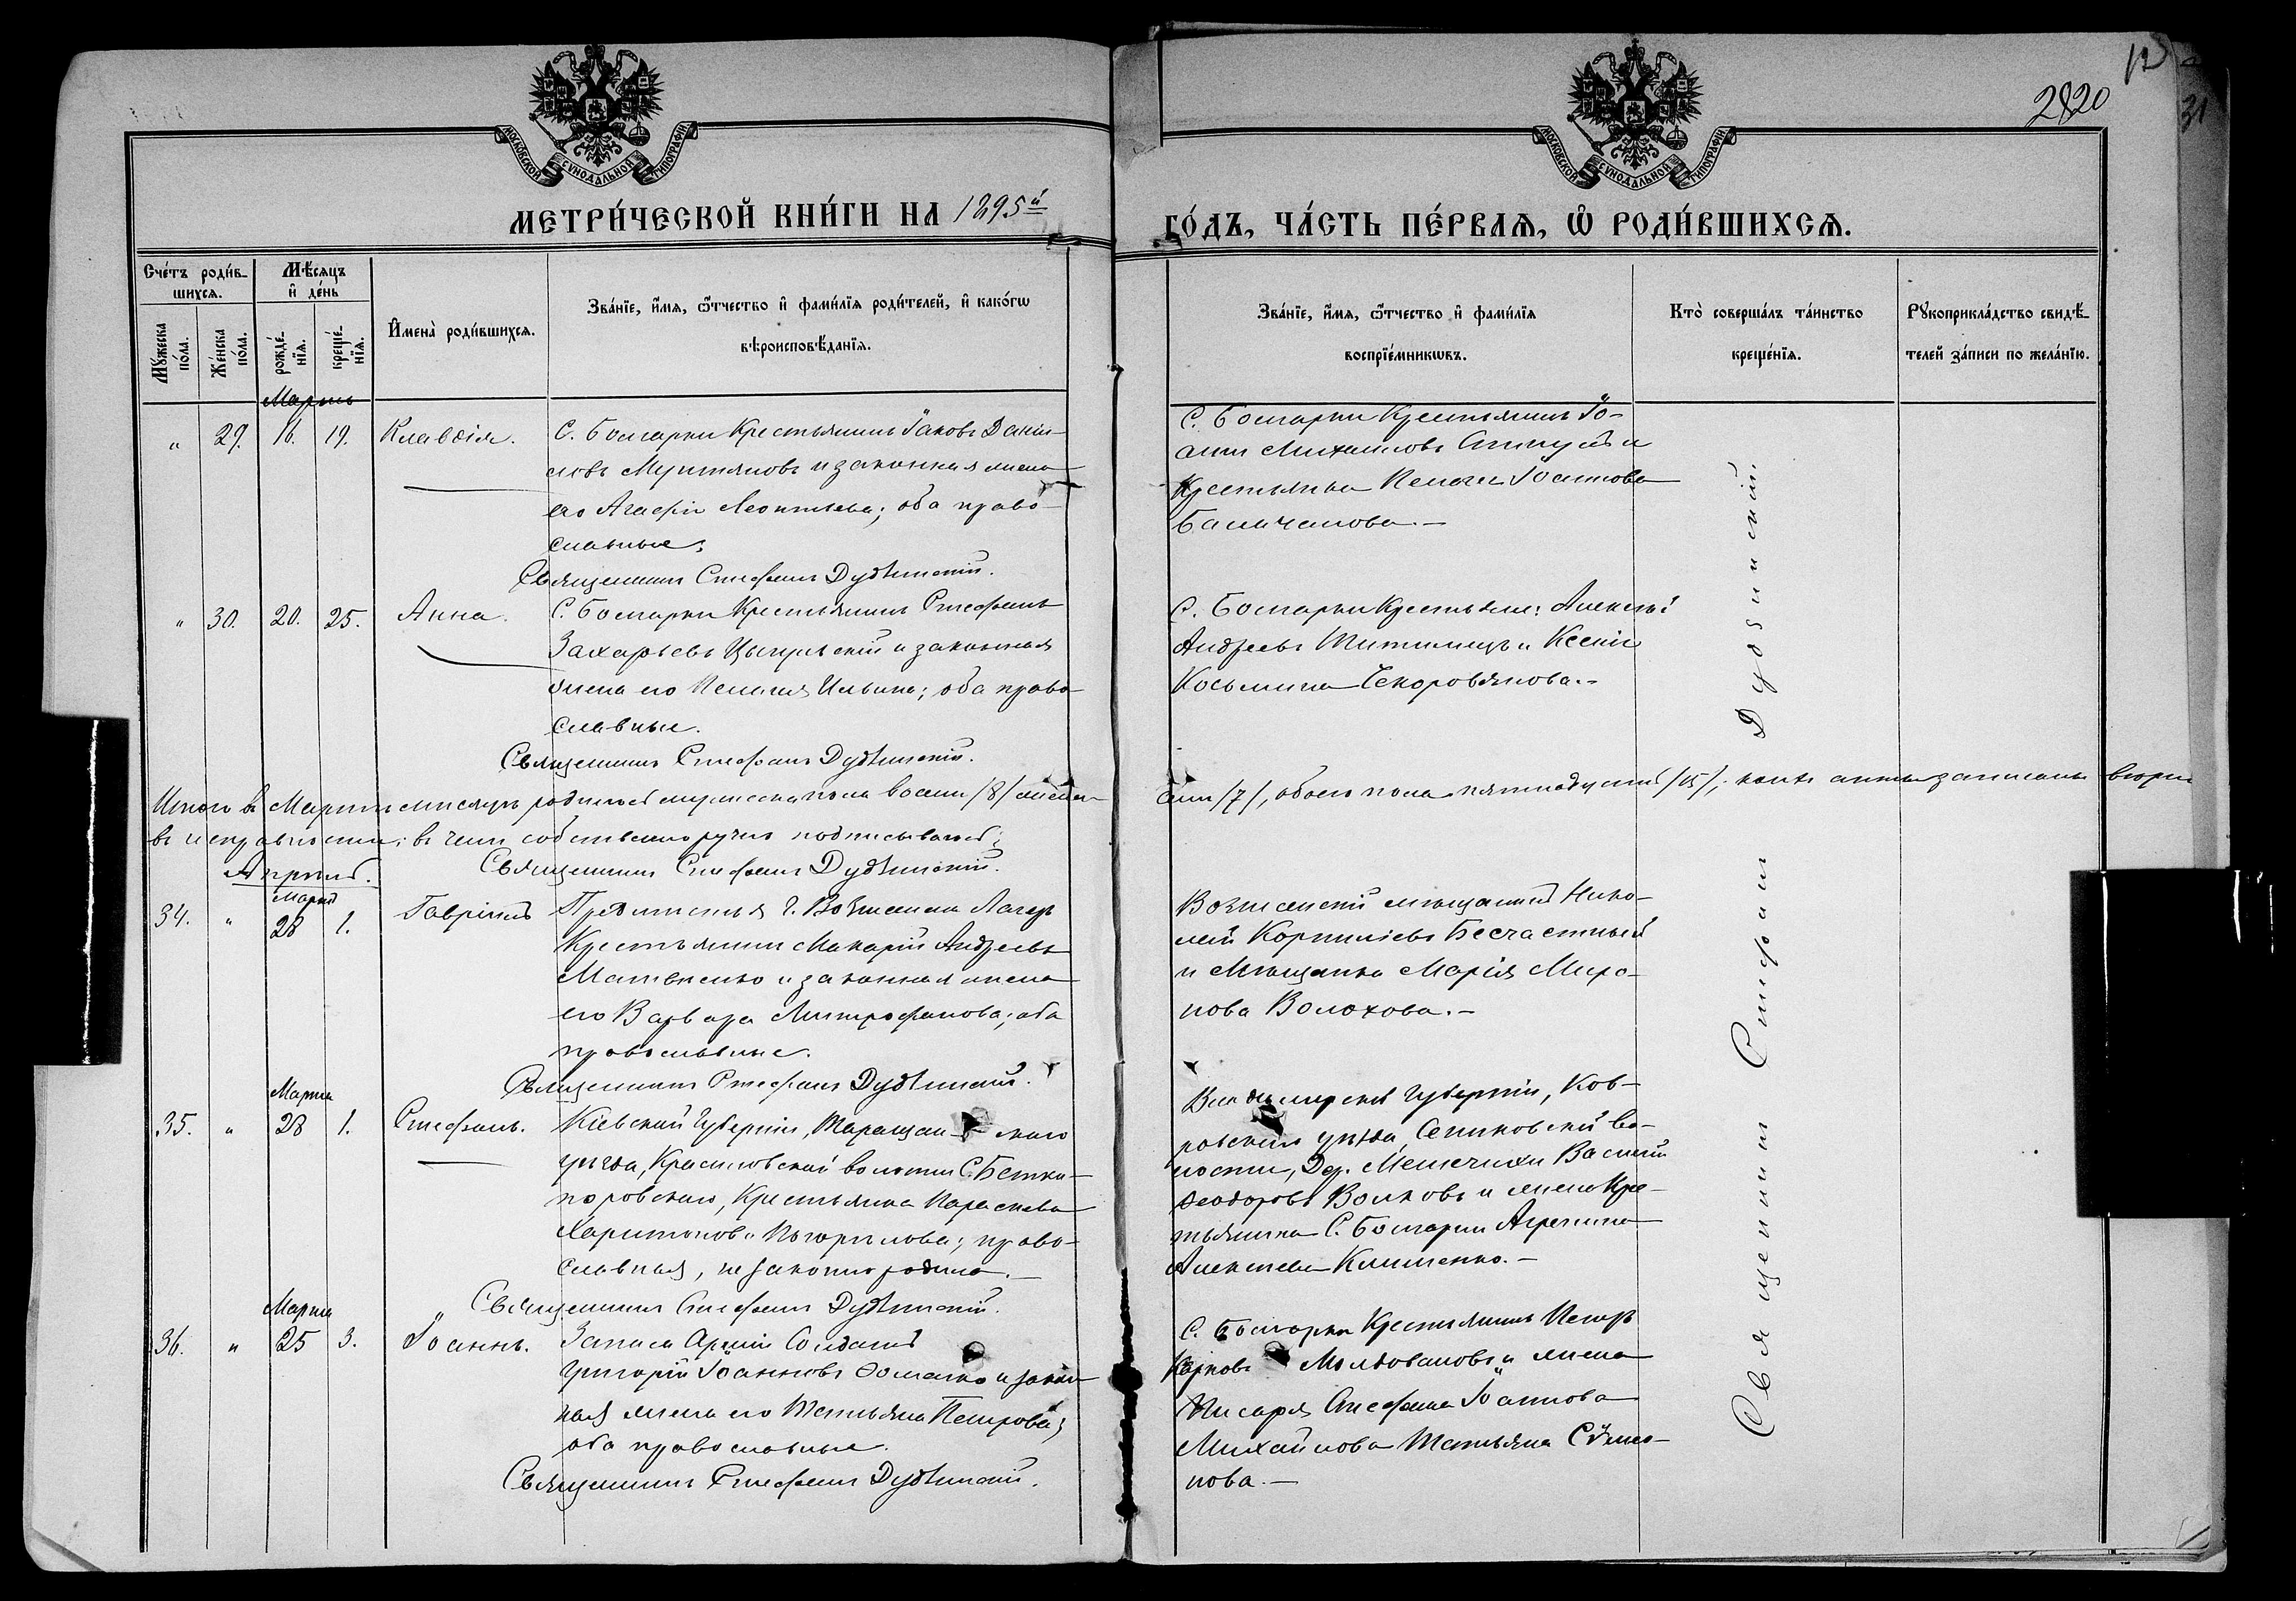 2820
12
31
МОСКОВСКОЙ СѴНОДАЛЬНОЙ ТИПОГРАФІИ.
МОСКОВСКОЙ СѴНОДАЛЬНОЙ ТИПОГРАФІИ.
МЕТРИ́ЧЕСКОЙ КНИ́ГИ НА 1895й ГО́ДЪ, ЧА́СТЬ ПЕ́РВАѦ, Ѡ҆ РОДИ́ВШИХСѦ.
Сче́тъ роди́вшихсѧ.
Мꙋ́жеска по́ла.
Же́нска по́ла.
Мѣ́сѧцъ и҆ де́нь
рожде́нїѧ.
креще́нїѧ.
И҆мена̀ роди́вшихсѧ.
Зва́нїе, и҆́мѧ, ѻ҆́тчество и҆ фами́лїѧ роди́телей, и҆ како́гѡ
вѣроисповѣ́данїѧ.
Зва́нїе, и҆́мѧ, ѻ҆́тчество и҆ фами́лїѧ
воспрїе́мникѡвъ.
Кто̀ соверша́лъ та́инство
креще́нїѧ.
Рꙋкоприкла́дство свидѣ́-
телей за́писи по жела́нїю.
Мартъ
" 29. 16. 19. Клавдія.
С. Болгарки Крестьянинъ Іаковъ Даніи-
ловъ Мунтяновъ и законная жена
его Агафія Леонтьева; оба право-
славные.
Священникъ Стефанъ Дубѣнскій.
С. Болгарки Крестьянинъ Іо-
аннъ Михаиловъ и
Крестьянка Пелагія Іоаннова
" 30. 20. 25. Анна.
С. Болгарки Крестьянинъ Стефанъ
Захарьевъ Цыгульскій и законная
жена его Пелагія Ильина; оба право-
славные.
Священникъ Стефанъ Дубѣнскій.
С. Болгарки Крестьяне: Алексѣй
Андреевъ и Ксенія
Косьмина
Итого въ Мартѣ мѣсяцѣ родилось мужеска пола восемь /8/ женска семь /7/, обоего пола пятнадцать /15/; акты записаны
въ исправности; въ чемъ собственноручно подписываюсь:
Священникъ Стефанъ Дубѣнскій.
Апрѣль.
Мартъ
34. " 28 1. Гавріилъ
Предместья г. Вознесенска Лагерь
Крестьянинъ Макарій Андреевъ
Матвѣенко и законная жена
его Варвара Митрофанова; оба
православные.
Священникъ Стефанъ Дубѣнскій.
Вознесенскій мѣщанинъ Нико-
лай Корниліевъ Бесчастный
и Мѣщанка Марія Миро-
нова Волохова.-
Марта
35. " 28 1. Стефанъ.
Кіевской Губерніи, Таращан-скаго
уѣзда, Красиловской волости С.
Крестьянка Параскева
Харитонова; право-
славная, незаконнорожденъ.
Священникъ Стефанъ Дубѣнскій.
Владимірской губерніи, Ков-
ровскаго уѣзда, волости, Дер. Василій
Ѳеодоровъ Волковъ и жена Крес-
тьянина С. Болгарки Агрепина
Алексѣева Клименко.-
Марта
36. " 25 3. Іоаннъ.
Запаса Арміи Солдатъ
Григорій Іоанновъ и закон-
ная жена его Татьяна Петрова;
оба православные.
Священникъ Стефанъ Дубѣнскій.
С. Болгарки Крестьянинъ Петръ
Молдовановъ и жена
Писаря Стефана Іоаннова
Михайлова Татьяна Сѵмео-
нова.-
Священникъ Стефанъ Дубѣнскій.